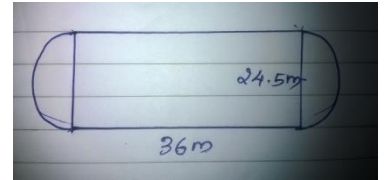 24.5m
36m